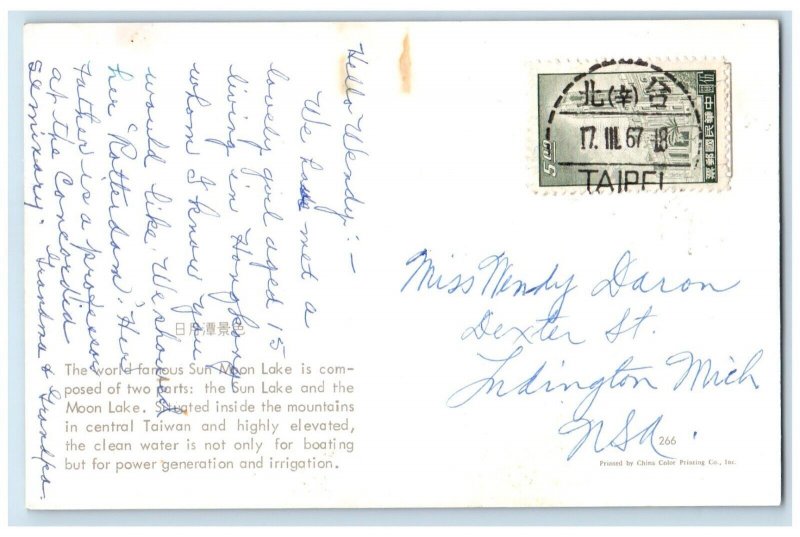 Hello Wendy: —
We have met a
lovely girl aged 15
living in Hongkong
whom I know you
would like. We showed
her "Rotterdam". Her
father is a professor
at the Concordia
Seminary. Grandma & Grandpa.
日月潭景色
The world famous Sun Moon Lake is com-
posed of two parts: the Sun Lake and the
Moon Lake. Situated inside the mountains
in central Taiwan and highly elevated,
the clean water is not only for boating
but for power generation and irrigation.
北(辛)台
17. III. 67. 18
TAIPEI
中華民國郵票
5.00
Miss Wendy Daron
Dexter St.
Ludington Mich
USA.
266
Printed by China Color Printing Co., Inc.